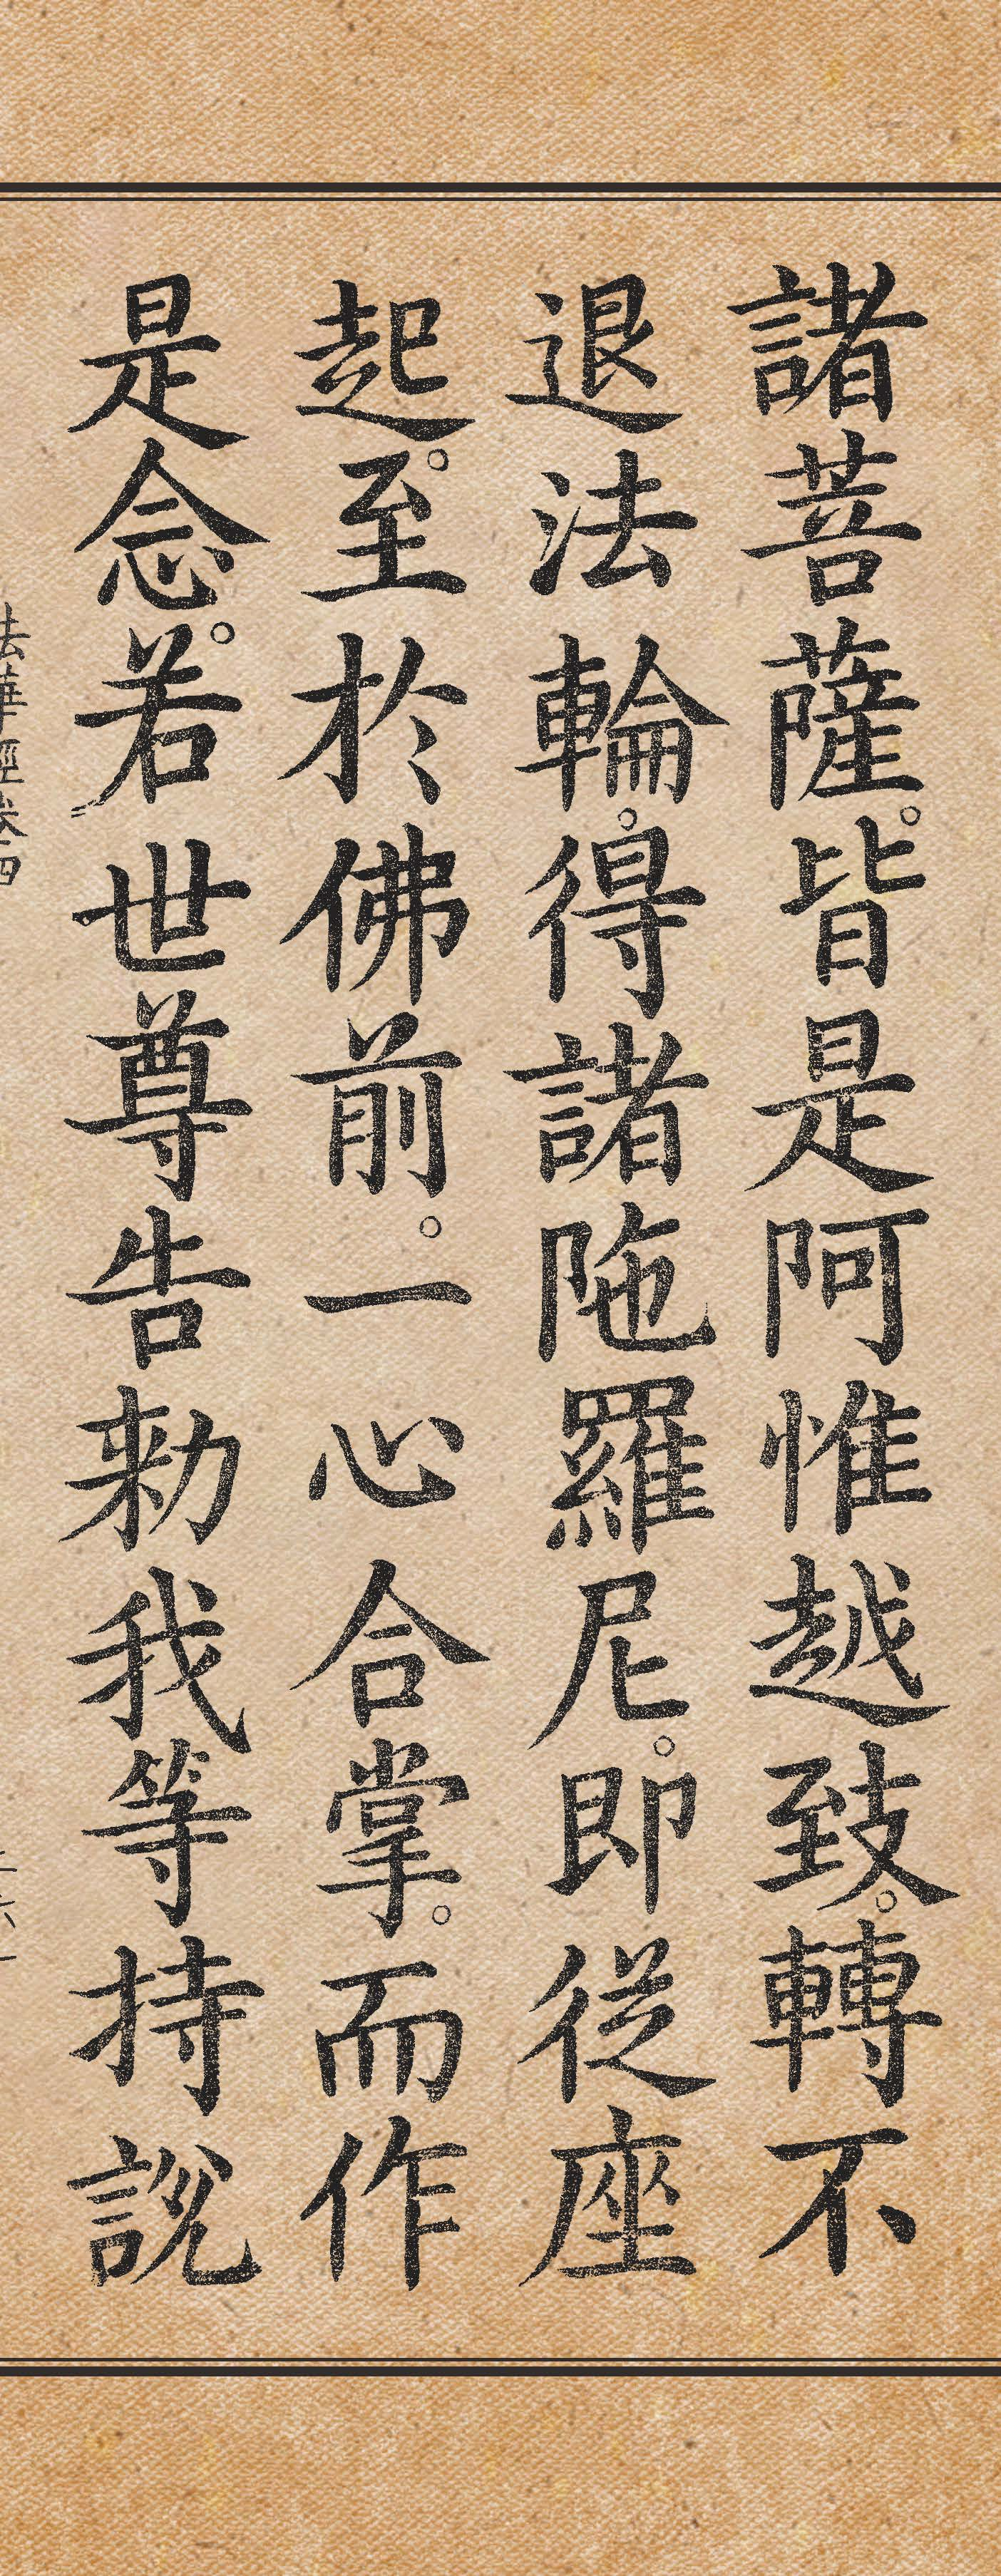 諸菩薩。皆是阿惟越致。轉不
退法輪。得諸陁羅尼。即從座
起。至於佛前。一心合掌。而作
是念。若世尊告勑我等持說
法華經卷四